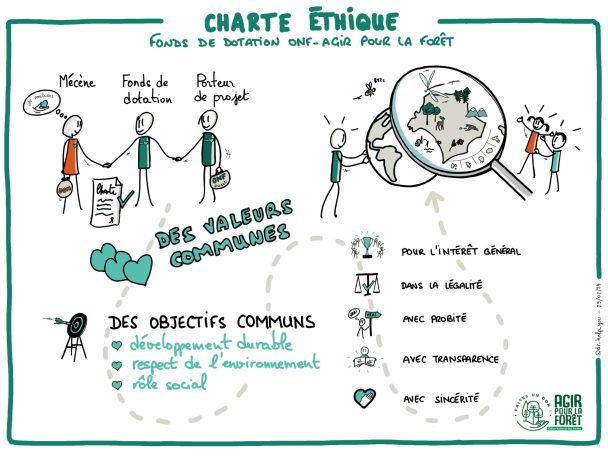 CHARTE ÉTHIQUE
FONDS DE DOTATION ONF-AGIR POUR LA FORÊT
Mécène
Fonds de
dotation
Porteur
de projet
Charte
ONF
BZZZ
DES VALEURS
COMMUNES
POUR L'INTÉRÊT GÉNÉRAL
DANS LA LÉGALITÉ
AVEC PROBITÉ
AVEC TRANSPARENCE
AVEC SINCÉRITÉ
DES OBJECTIFS COMMUNS
développement durable
respect de l'environnement
rôle social
FAITES UN DON !
AGIR
POUR LA
FORÊT